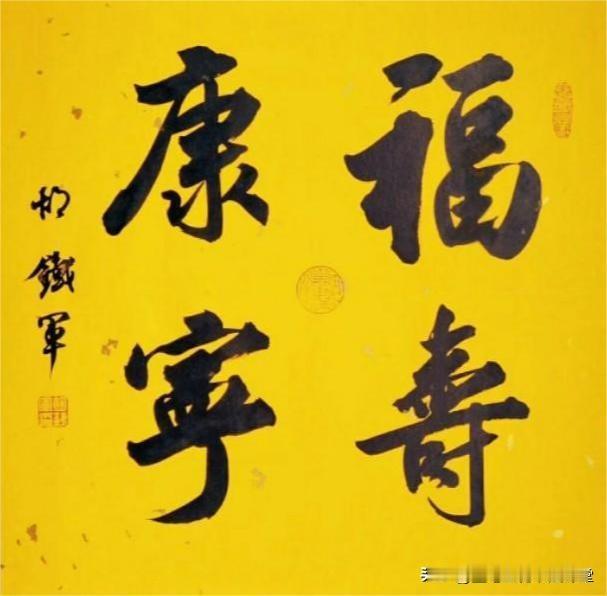 福壽
康寧
胡鐵軍